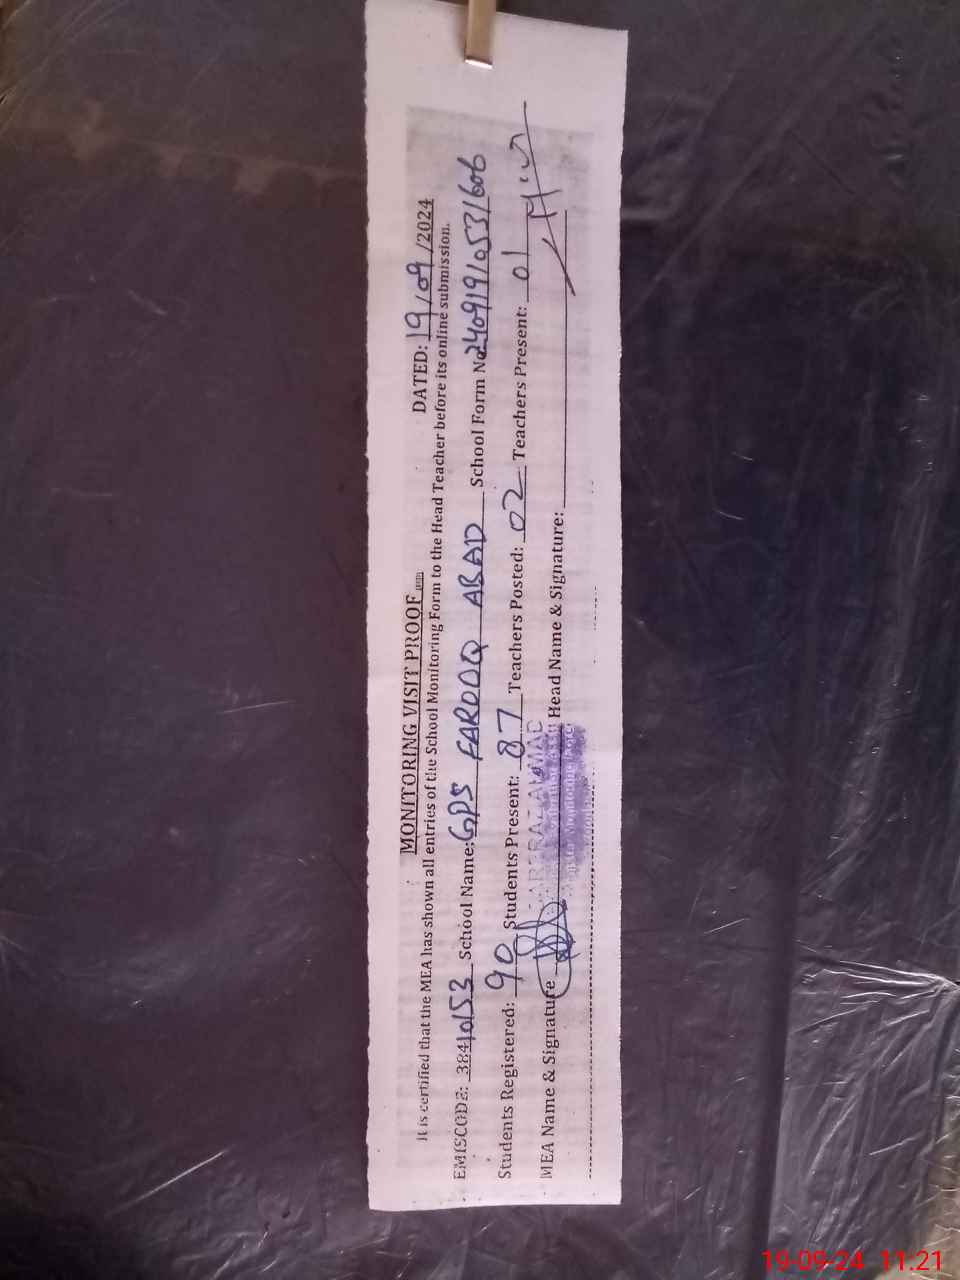 MONITORING VISIT PROOF
DATED: 19/09/2024
It is certified that the MEA has shown all entries of the School Monitoring Form to the Head Teacher before its online submission.
EMISCODE: 38410153 School Name: GPS FAROOQ ABAD School Form No. 24091910531606
Students Registered: 90 Students Present: 87 Teachers Posted: 02 Teachers Present: 01
MEA Name & Signature Head Name & Signature:
19-09-24 11:21